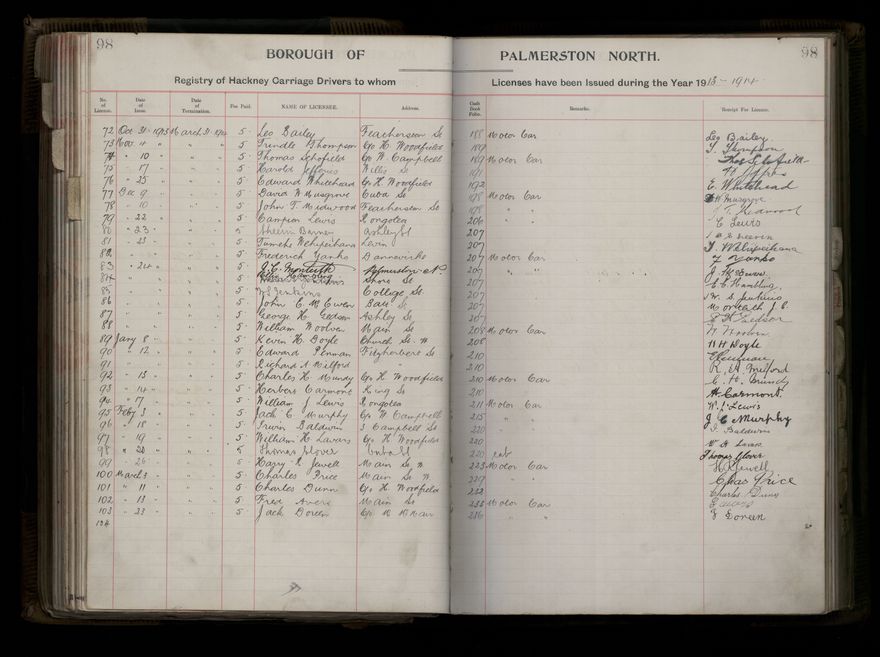 98
98
BOROUGH OF PALMERSTON NORTH.
Registry of Hackney Carriage Drivers to whom Licenses have been Issued during the Year 1913-1914
No. of License. Date of Issue. Date of Termination. Fee Paid. NAME OF LICENSEE. Address. Cash Book Folio. Remarks. Receipt For License.
72 Oct 31 1913 March 31 1914 5 Leo Bailey Featherston St 188 Motor Car Leo Bailey
73 Nov 4 " " 5 Trindle Thompson C/o H Woodfield 189 T. Thompson
74 " 10 " " 5 Thomas Schofield C/o W Campbell 189 Motor Car
75 " 17 " " 5 Harold Jeffries Willis St 191
76 " 25 " " 5 Edward Whitehead C/o H. Woodfield 192 E. Whitehead
77 Dec 9 " " 5 David W Musgrove Cuba St 198 Motor Car D W Musgrove
78 " 10 " " 5 John T Midwood Featherston St 198 " "
79 " 22 " " 5 Campion Lewis Rongotea 206 " " C Lewis
80 " 23 " " 5 Ashley St 207
81 " 23 " " 5 Wehipeihana Levin 207 T. Wehipeihana
82 " " 5 Frederick Yanko Dannevirke 207 Motor Car F Yanko
83 " 24 " " 5 J. C. Monteith Palmerston N. 207 " "
84 " " 5 Shore St 207 E C Hambling
85 " " 5 W S Jenkins College St 207 W. S. Jenkins
86 " " 5 John C. McEwen St 207 Monteith J. C.
87 " " 5 George H. Gedson Ashley St 207
88 " " 5 William Woolven Main St 208 Motor Car
89 Jany 8 " " 5 Keven H Doyle Church St. W 208 H Doyle
90 " 12 " " 5 Edward Penman Fitzherbert St 210
91 " " 5 Richard A Milford " 210 R. A. Milford
92 " 13 " " 5 Charles H Mundy C/o H Woodfield 210 Motor Car C. H. Mundy
93 " 14 " " 5 Herbert Carmont King St 210 H Carmont
94 " 17 " " 5 William J Lewis Rongotea 211 Motor Car W. J. Lewis
95 Feby 3 " " 5 Jack C Murphy C/o W Campbell 215 " " J C Murphy
96 " 18 " " 5 Irwin Baldwin Campbell St 220 " " I. Baldwin
97 " 19 " " 5 William H Lavars C/o H Woodfield 220
98 " 20 " " 5 Thomas Glover Cuba St 220 Cab Thomas Glover
99 " 26 " " 5 Harry K Jewell Main St W 223 Motor Car H K Jewell
100 March 3 " " 5 Charles Price Main St W 229 " " Chas Price
101 " 11 " " 5 Charles Dunn C/o H Woodfield 232 Charles Dunn
102 " 13 " " 5 Fred Main St 233 Motor Car
103 " 23 " " 5 Jack Doreen C/o 236 " " J Doreen
104